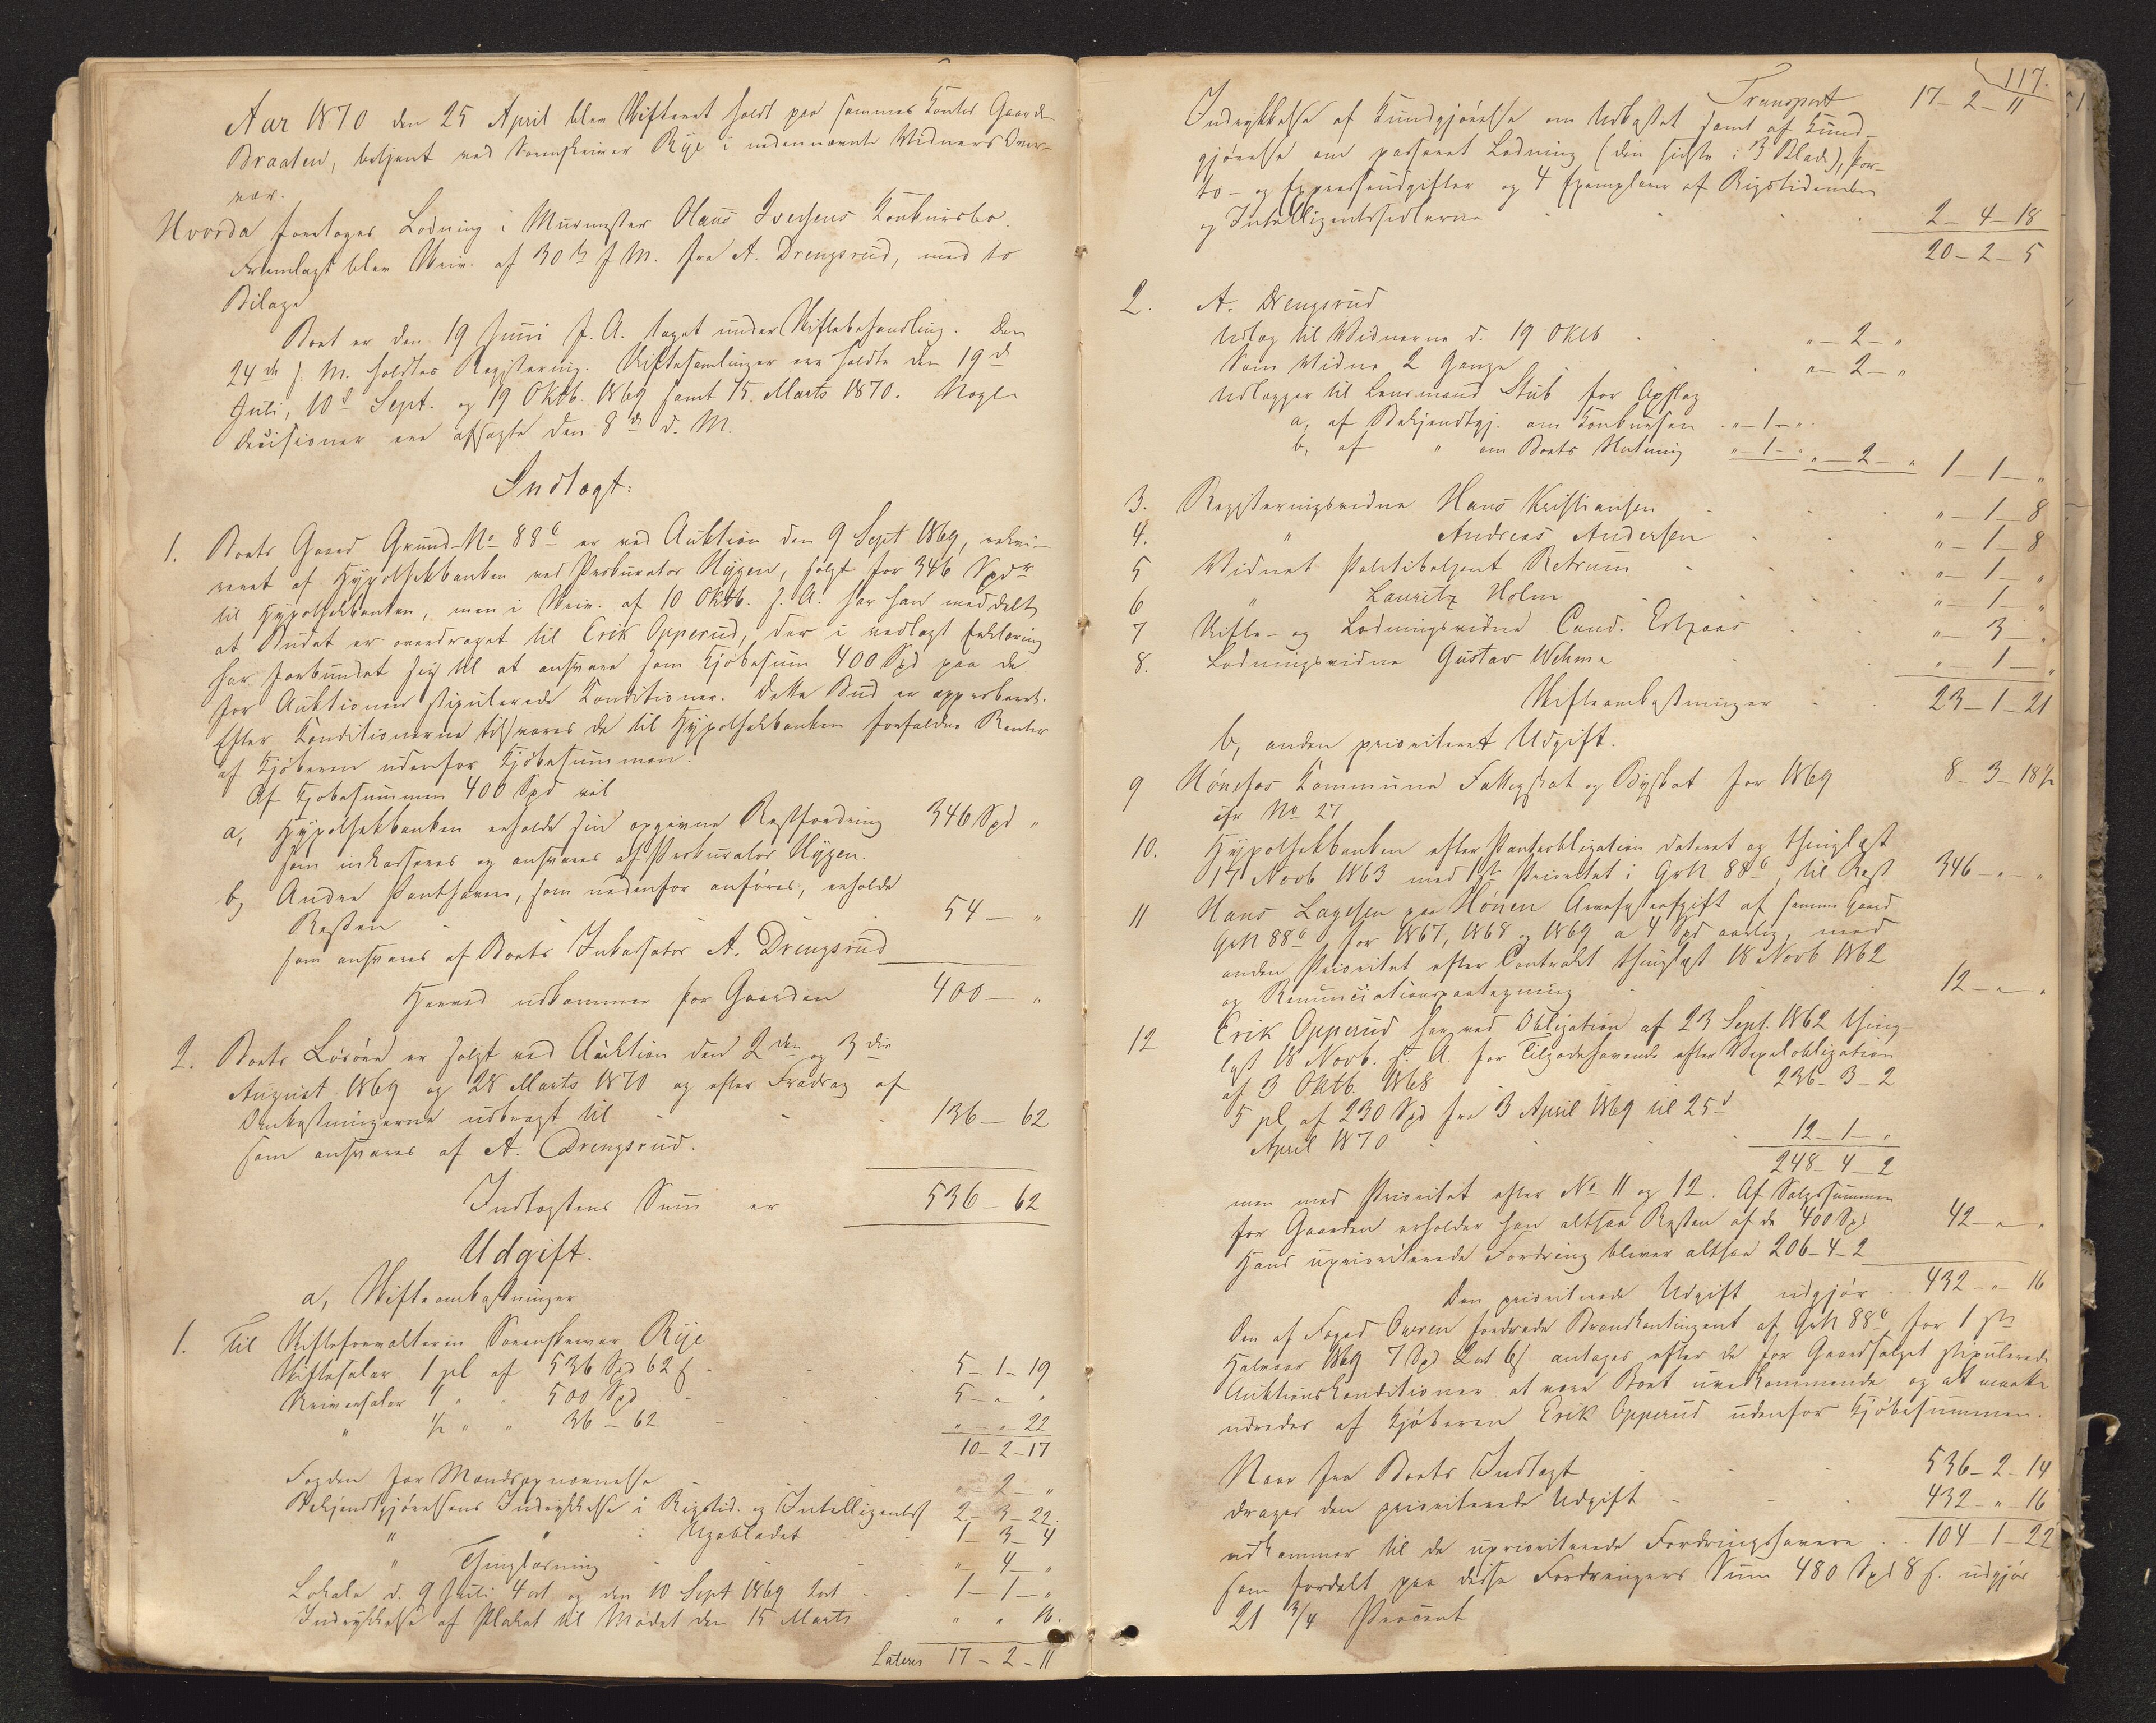 Aar 1870 den 25 April blev Skifteret holdt paa sammes Kontor Gaarden
Braaten, betjent ved Sorenskriver Rye i nedennævnte Vidners Overvær.
Hvorda foretoges Lodning i Murmester Olaus Iversens Konkursbo.
Fremlagt blev Skriv. af 30te f. M. fra A. Drengsrud, med to
Bilage
Boet er den 19 Juni f. A. taget under Skiftebehandling. Den
24de s. M. holdtes Registrering. Skiftesamlinger ere holdte den 19de
Juli, 10de Sept. og 19 Oktb. 1869 samt 15. Marts 1870. Nogle
Decisioner ere afsagte den 8de d. M.
Indtægt:
1. Boets Gaard Grund-No 88c er ved Auktion den 9 Sept 1869, rekvi-
reret af Hypothekbanken ved Prokurator Hygen, solgt for 346 Spdr
til Hypothekbanken, men i Skriv. af 10 Oktb. f. A. har han meddelt
at Budet er overdraget til Erik Opperud, der i vedlagt Erklæring
har forbundet sig til at ansvare som Kjøbesum 400 Spd paa de
for Auktionen stipulerede Konditioner. Dette Bud er approberet.
Efter Konditionerne tilsvares de til Hypothekbanken forfaldne Renter
af Kjøberen udenfor Kjøbesummen.
Af Kjøbesummen 400 Spd vil
a, Hypothekbanken erholde sin opgivne Restfordring 346 Spd "
som inkasseres og ansvares af Prokurator Hygen.
b, Andre Panthavere, som nedenfor anføres, erholde
Resten 54 — "
som ansvares af Boets Inkassator A. Drengsrud
Herved udkommer for Gaarden 400 — "
2. Boets Løsøre er solgt ved Auktion den 2den og 3die
August 1869 og 28 Marts 1870 og efter Fradrag af
Omkostningerne udbragt til 136 — 62
som ansvares af A. Drengsrud.
Indtægtens Sum er 536 — 62
Udgift.
a, Skifteomkostninger
1. Til Skifteforvalteren Sorenskriver Rye
Skiftesalær 1 pCt af 536 Spd 62 ß 5 – 1 – 19
Skriversalær 1 " " 500 Spd 5 – " "
" ½ " " 36 – 62 " – " – 22
10 – 2 – 17
Fogden for Mandsopnævnelse " – 2 – "
Bekjendtgjørelsens Indrykkelse i Rigstid. og Intelligents 2 – 3 – 22.
" " i Ugebladet 1 – 3 – 4
" Thinglæsning " – 4 – "
Lokale d. 9 Juli 4 ort og den 10 Sept 1869 2 ort 1 – 1 – "
Indrykkelse af Plakat til Mødet den 15 Marts " " 16.
Lateres 17 – 2 – 11
117.
Transport 17 – 2 – 11
Indrykkelse af Kundgjørelse om Udkastet samt af Kund-
gjørelse om passeret Lodning (den sidste i 3 Blade), Por-
to- og Expressudgifter og 4 Exemplarer af Rigstidenden
og Intelligentssedlerne 2 – 4 – 18
20 – 2 – 5
2. A. Drengsrud
Udlæg til Vidnerne d. 19 Oktb " – 2 – "
Som Vidne 2 Gange " – 2 – "
Udlægger til Lensmand Stub for Opslag
a, af Bekjendtgj. om Konkursen " – 1 – "
b, af " om Boets Slutning " – 1 – " " – 2 – " 1 – 1 – "
3. Registreringsvidne Hans Kristiansen " – 1 – 8
4. " Andreas Andersen " – 1 – 8
5 Vidnet Politibetjent Retrum " – 1 – "
6 " Lauritz Holm " – 1 – "
7 Skifte- og Lodningsvidne Cand. " – 3 – "
8. Lodningsvidne Gustav Wehme " – 1 – "
Skifteomkostninger 23 – 1 – 21
b, anden prioriteret Udgift.
9 Hönefos Kommune Fattigskat og Byskat for 1869 8 – 3 – 18½
cfr No 27
10. Hypothekbanken efter Pantobligation dateret og thinglæst
17 Novb 1863 med 1ste Prioritet i GrN 88c, til Rest 346 – " – "
11 Hans Lagesen paa Hönen Arvefæsteafgift af samme Gaard
GrN 88c for 1867, 1868 og 1869 a 4 Spd aarlig, med
anden Prioritet efter Contrakt thinglæst 18 Novb 1862
og Renunciationspaategning 12 – " – "
12 Erik Opperud har ved Obligation af 23 Sept. 1862 thing-
læst 18 Novb. s. A. for Tilgodehavende efter Vexelobligation
af 3 Oktb. 1868 236 – 3 – 2
5 pCt af 230 Spd fra 3 April 1869 til 25de
April 1870 12 – 1 – "
248 – 4 – 2
men med Prioritet efter No 11 og 12. Af Salgssummen
for Gaarden erholder han altsaa Resten af de 400 Spd 42 – " – "
Hans uprioriterede Fordring bliver altsaa 206 – 4 – 2
Den prioriterede Udgift udgjør 432 – " – 16
Den af Foged fordrede Brandkontingent af GrN 88c for 1ste
Halvaar 1869 7 Spd 2 ort 6 ß antages efter de for Gaardsalget stipulerede
Auktionskonditioner at være Boet uvedkommende og at maatte
udredes af Kjøberen Erik Opperud udenfor Kjøbesummen.
Naar fra Boets Indtægt 536 – 2 – 14
drages den prioriterede Udgift 432 – " – 16
udkommer til de uprioriterede Fordringshavere 104 – 1 – 22
som fordelt paa disse Fordringers Sum 480 Spd 8 ß. udgjør
21 3/4 Procent